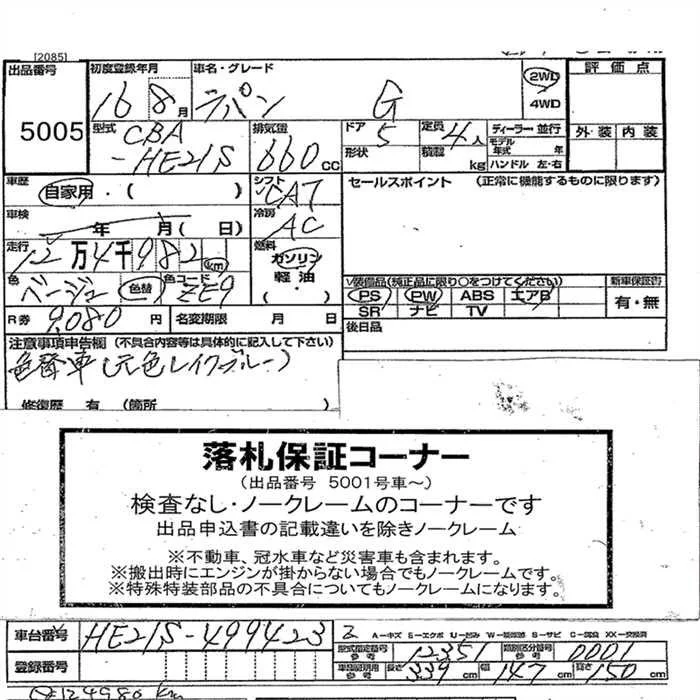 [2085]
出品番号 5005
初度登録年月 16 8月
車名・グレード ラパン G
2WD
4WD
評価点
外装 内装
型式 CBA-HE21S
排気量 660 CC
ドア 5
形状
定員 4人
積載 kg
ディーラー・並行
モデル年式 年
ハンドル 左・右
車歴 自家用・( )
シフト CAT
セールスポイント (正常に機能するものに限ります)
車検 年 月( 日)
冷房 AC
走行 12万4千982 km
燃料 ガソリン 軽油 (・)
色 ベージュ 色替 色コード ZE9
V装備品(純正品に限り○をつけてください)
PS PW ABS エアB
SR ナビ TV
新車保証書 有・無
R券 9080円 名変期限 月 日
後日品
注意事項申告欄 (不具合内容等は具体的に記入して下さい)
色替車(元色レイクブルー)
修復歴 有 (箇所 )
落札保証コーナー
(出品番号 5001号車~)
検査なし・ノークレームのコーナーです
出品申込書の記載違いを除きノークレーム
※不動車、冠水車など災害車も含まれます。
※搬出時にエンジンが掛からない場合でもノークレームです。
※特殊特装部品の不具合についてもノークレームになります。
車台番号 HE21S-499423
A-キズ E-エクボ U-凹み W-補修跡 S-サビ C-腐食 XX-交換済
型式指定番号 参考 12351 類別区分番号 参考 0001
登録番号
車種証明用 参考 長さ 339cm 幅 147cm 高さ 150cm
124980 km